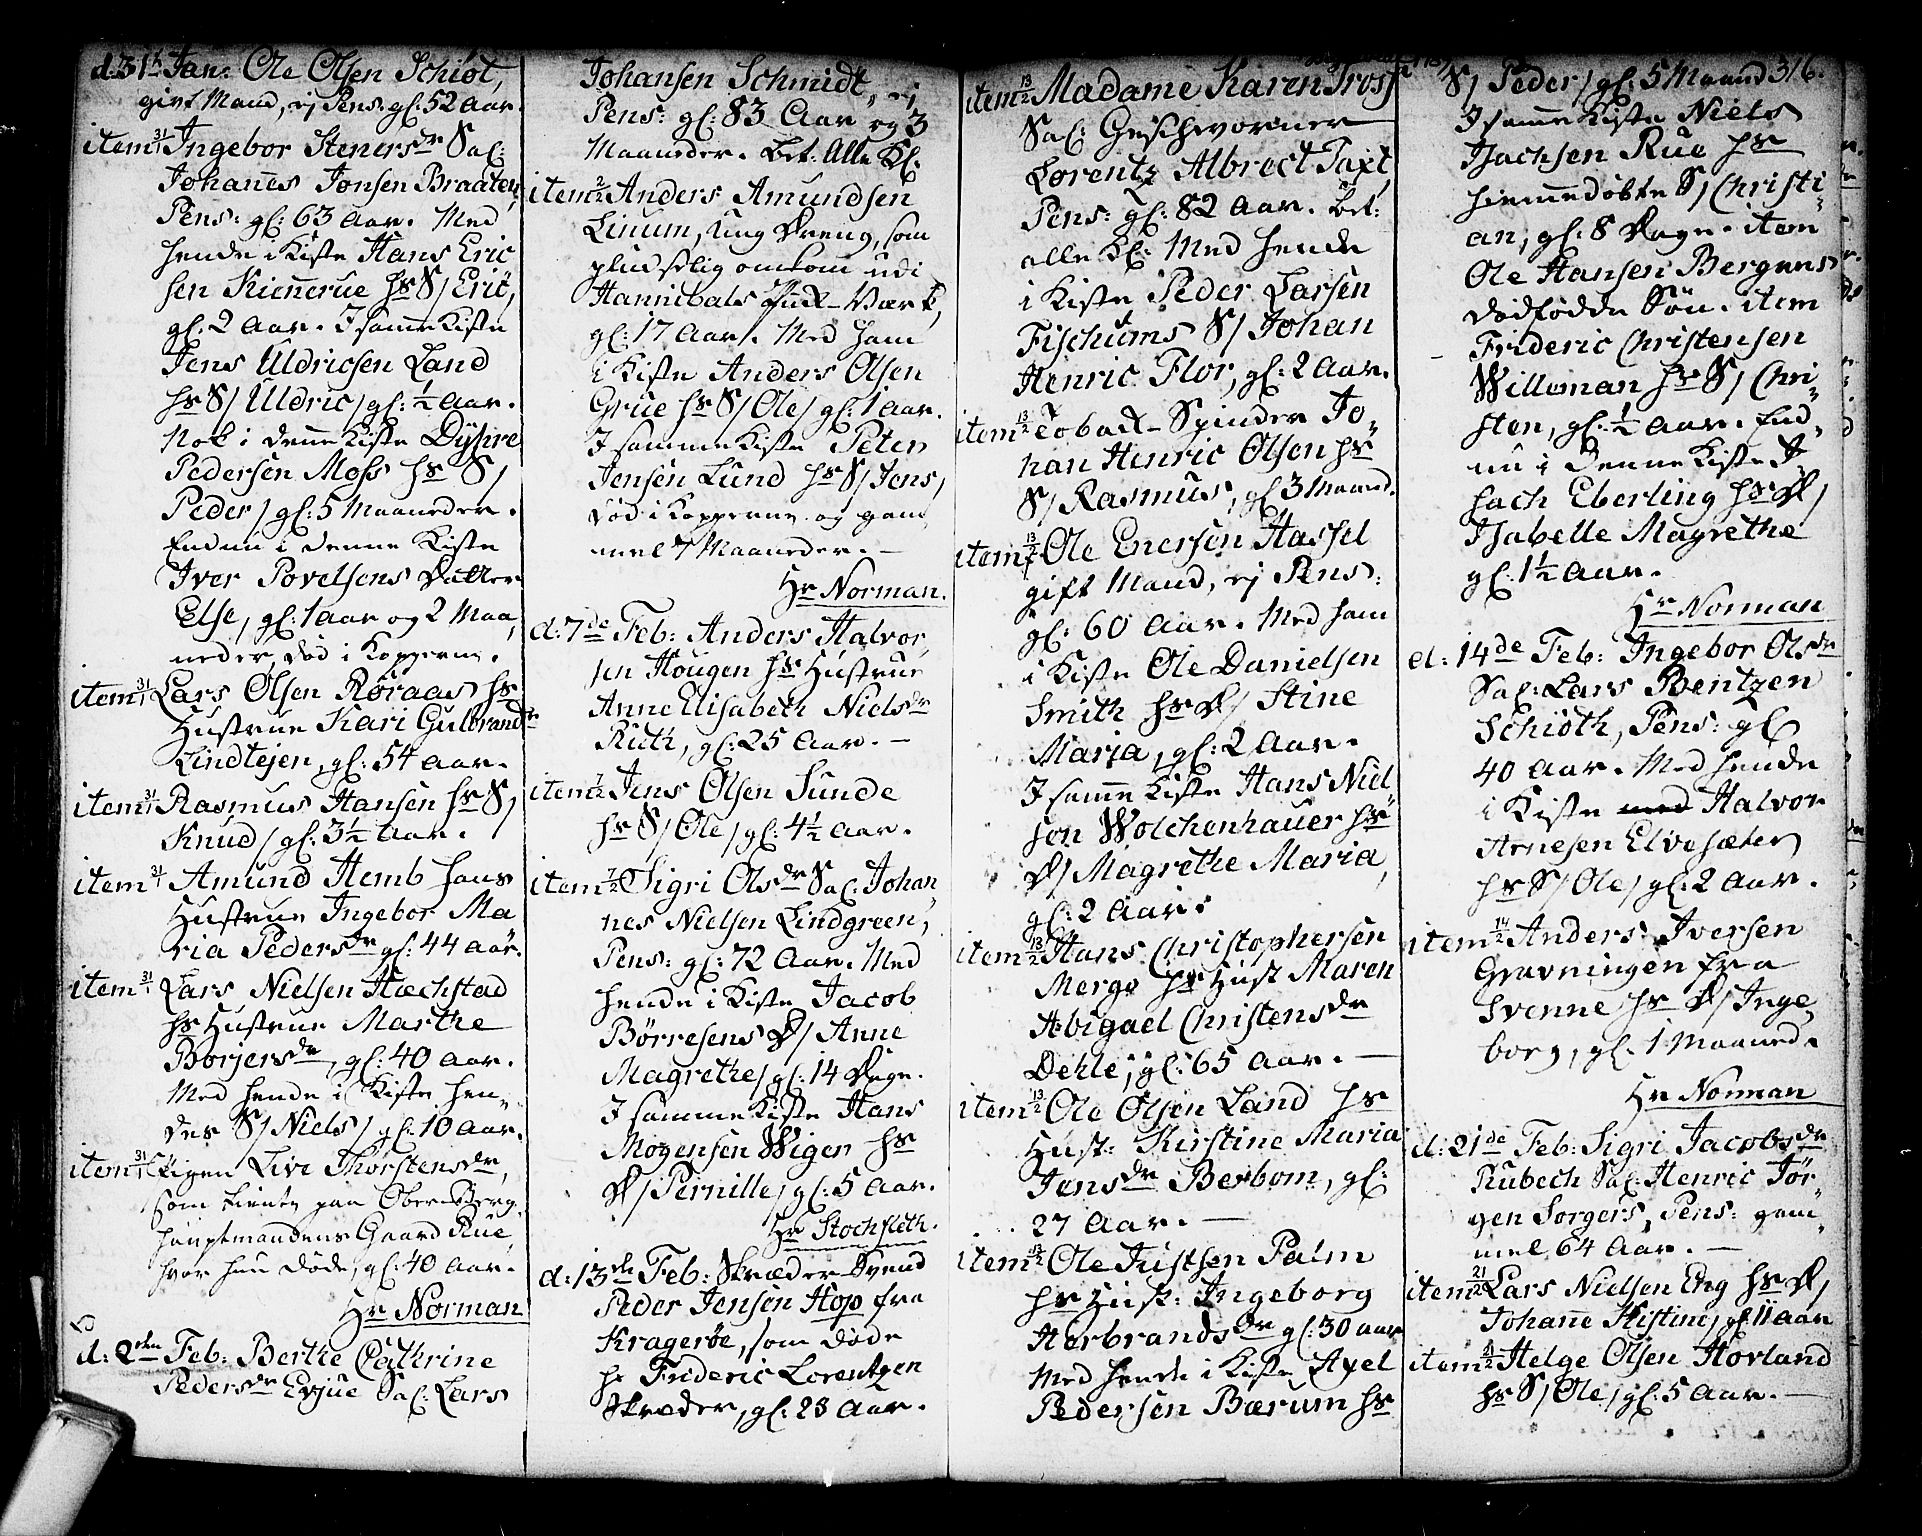 d: 31t Jan: Ole Olsen Schiöt,
gift Mand, ej Pens: gl: 52 Aar.
item 31/1 Ingebor Stenersdr Sal:
Johannes Jonsen Braaten,
Pens: gl: 63 Aar. Med
hende i Kiste Hans Eric
sen Kiennerue hs S/ Eric,
gl: 2 Aar. I samme Kiste
Jens Uldricsen Land
hs S/ Uldric/ gl: ½ Aar.
Nok i denne Kiste Dyhre
Pedersen Moss hs S/
Peder/ gl: 5 Maaneder.
Endnu i denne Kiste
Iver Povelsens Datter
Else, gl: 1 Aar og 2 Maa,
neder, död i Kopperne.
item 31/1 Lars Olsen Röraas hs
Hustrue Kari Gulbrandsdr
Lindtejen, gl: 54 Aar.
item 31/1 Rasmus Hansen hs S/
Knud/ gl: 3½ Aar.
item 31/1 Amund Hemb hans
Hustrue Ingebor Ma
ria Pedersdr gl: 44 Aar.
item 31/1 Lars Nielsen Hæchstad
hs Hustrue Marthe
Börjersdr, gl: 40 Aar.
Med hende i Kiste hen,
des S/ Niels/ gl: 10 Aar.
item 31/1 Pigen Live Thorstensdr,
som tiente paa Ober-Berg,
hauptmandens Gaard Rue,
hvor hun döde, gl: 40 Aar.
Hr Norman
d: 2den Feb: Berthe Cathrine
Pedersdr Evjue Sal: Lars
Johansen Schmidt, ej
Pens: gl: 83 Aar og 3
Maaneder. Bet: Alle Kl.
item 2/2 Anders Amundsen
Linum, ung Dreng, som
pludselig omkom udi
Hannibals Puck-Værk,
gl: 17 Aar. Med ham
i Kiste Anders Olsen
Grue hs S/ Ole/ gl: 1 Aar.
I samme Kiste Peter
Jensen Lund hs S/ Jens/
död i Kopperne og gam,
mel 7 Maaneder. —
Hr Norman.
d: 7de Feb: Anders Halvor,
sen Hougen hs Hustrue
Anne Elisabeth Nielsdr
Ruth, gl: 25 Aar. —
item 7/2 Jens Olsen Sunde
hs S/ Ole/ gl: 4½ Aar.
item 7/2 Sigri Olsdr Sal: Johan
nes Nielsen Lindgreen,
Pens: gl: 72 Aar. Med
hende i Kiste Jacob
Börresens D/ Anne
Magrethe/ gl: 14 Dage.
I samme Kiste Hans
Mogensen Wiger hs
D/ Pernille/ gl: 5 Aar.
Hr Stochfleth.
d: 13de Feb: Skræder Svend
Peder Jensen Hop fra
Krageröe, som döde
hs Frideric Lorentzen
Skræder, gl: 23 Aar.
item 13/2 Madame Karen
Sal: Geschworner
Lorentz Albrect Taxt,
Pens: gl: 82 Aar. Bet:
alle Kl: Med hende
i Kiste Peder Larsen
Fischums S/ Johan
Henric Flor, gl: 2 Aar.
item 13/2 Toback-Spinder Jo,
han Henric Olsen hs
S/ Rasmus, gl 3 Maaned.
item 13/2 Ole Enersen Hassel
gift Mand, ej Pens:
gl: 60 Aar. Med ham
i Kiste Ole Danielsen
Smith hs D/ Stine
Maria, gl: 2 Aar.
I samme Kiste Hans Niel,
sen Wolchenhauer hs
D/ Magrethe Maria,
gl: 2 Aar.
item 13/2 Hans Christophersen
Merge hs Hust Maren
Abigael Christensdr
Dehle, gl: 65 Aar. —
item 13/2 Ole Olsen Land hs
Hust: Kirstine Maria
Jensdr Berbom, gl:
27 Aar. —
item 13/2 Ole Justsen Palm
hs Hust: Ingeborg
Herbrandsdr gl: 30 Aar
Med hende i Kiste Axel
Pedersen Bærum hs
316.
S/ Peder/ gl: 5 Maaned
I samme Kiste Niels
Isachsen Rue hs
hiemmedöbte S/ Christi,
an, gl: 8 Dage. item
Ole Hansen Bergans
dödfödde Sön. item
Frideric Christensen
Willeman hs S/ Chri,
sten, gl: ½ Aar. End,
nu i denne Kiste I,
sach Eberling hs D/
Isabelle Magrethe
gl: 1½ Aar.
Hr Norman
d: 14de Feb: Ingebor Olsdr
Sal: Lars Bentzen
Schiöth, Pens: gl
40 Aar. Med hende
i Kiste med Halvor
Arnesen Elvesæter
hs S/ Ole/ gl: 2 Aar.
item 14/2 Anders Iversen
Gravningen fra
Svenne hs D/ Inge,
borg, gl. 1 Maaned.
Hr Norman
d: 21de Feb: Sigri Jacobsdr
Rubech Sal: Henric Jör,
gen Sorgers, Pens: gam,
mel 64 Aar. —
item 21/2 Lars Nielsen Eng hs D/
Johanne Kistine/ gl 11 Aar
item 21/2 Helge Olsen Hovland
hs S/ Ole/ gl: 5 Aar. —